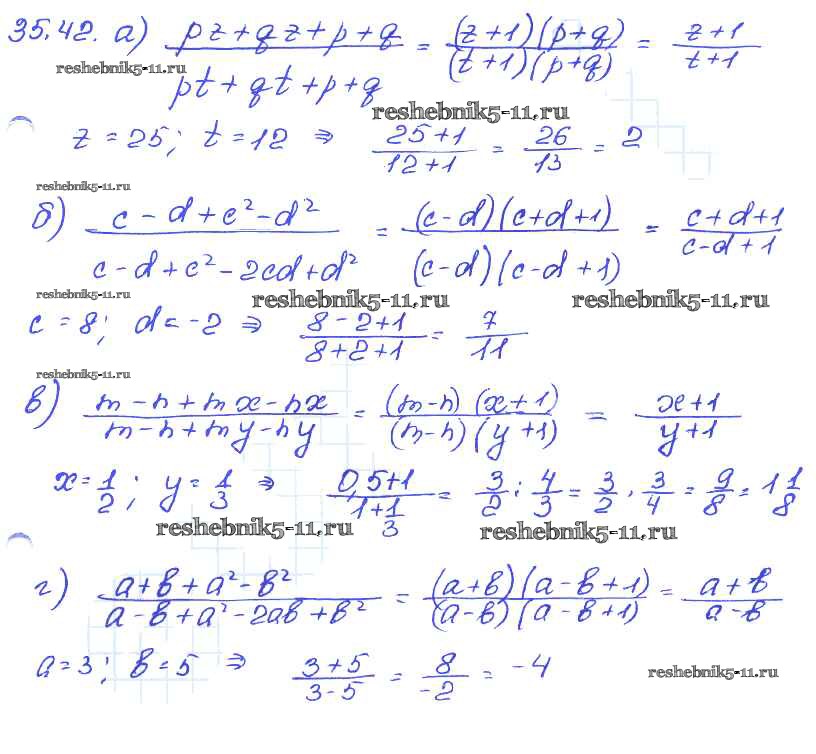 35.42. а) (pz + qz + p + q)/(pt + qt + p + q) = ((z+1)(p+q))/((t+1)(p+q)) = (z+1)/(t+1)
reshebnik5-11.ru
reshebnik5-11.ru
z = 25; t = 12 ⇒ (25+1)/(12+1) = 26/13 = 2
reshebnik5-11.ru
б) (c - d + c² - d²)/(c - d + c² - 2cd + d²) = ((c-d)(c+d+1))/((c-d)(c-d+1)) = (c+d+1)/(c-d+1)
reshebnik5-11.ru reshebnik5-11.ru reshebnik5-11.ru
c = 8; d = -2 ⇒ (8-2+1)/(8+2+1) = 7/11
reshebnik5-11.ru
в) (m - n + mx - nx)/(m - n + my - ny) = ((m-n)(x+1))/((m-n)(y+1)) = (x+1)/(y+1)
x = 1/2; y = 1/3 ⇒ (0,5+1)/(1+1/3) = 3/2 : 4/3 = 3/2 · 3/4 = 9/8 = 1 1/8
reshebnik5-11.ru reshebnik5-11.ru
г) (a + b + a² - b²)/(a - b + a² - 2ab + b²) = ((a+b)(a-b+1))/((a-b)(a-b+1)) = (a+b)/(a-b)
a = 3; b = 5 ⇒ (3+5)/(3-5) = 8/-2 = -4
reshebnik5-11.ru